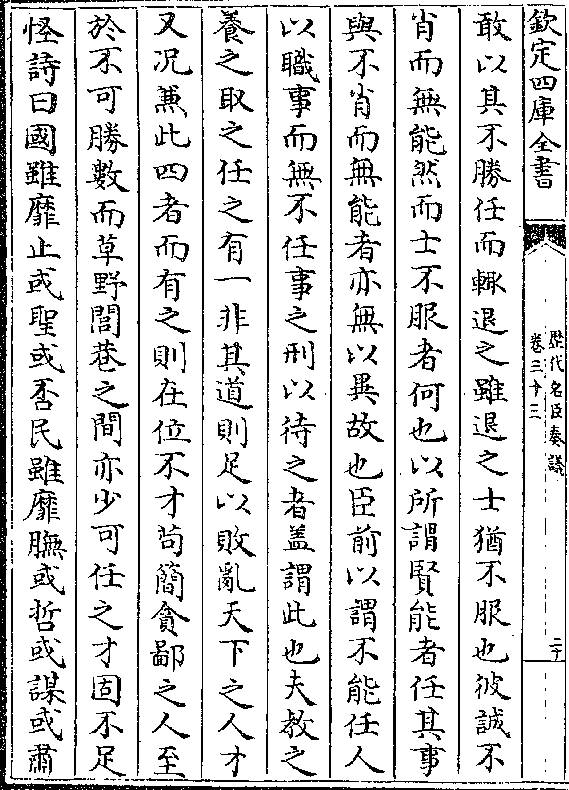 欽定四庫全書
歷代名臣奏議
卷三十三
二十
敢以其不勝任而輒退之雖退之士猶不服也彼誠不
肖而無能然而士不服者何也以所謂賢能者任其事
與不肖而無能者亦無以異故也臣前以謂不能任人
以職事而無不任事之刑以待之者蓋謂此也夫教之
養之取之任之有一非其道則足以敗亂天下之人才
又况兼此四者而有之則在位不才苟簡貪鄙之人至
於不可勝數而草野閭巷之間亦少可任之才固不足
怪詩曰國雖靡止或聖或否民雖靡膴或哲或謀或肅